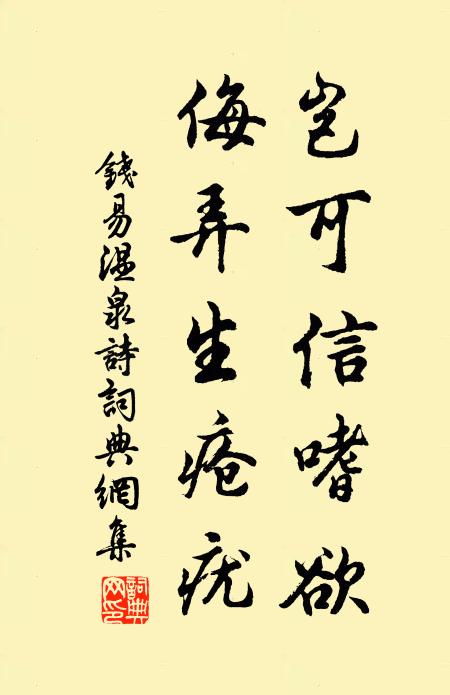 豈可信嗜欲
侮弄生瘡疣
錢易溫泉詩詞典網集